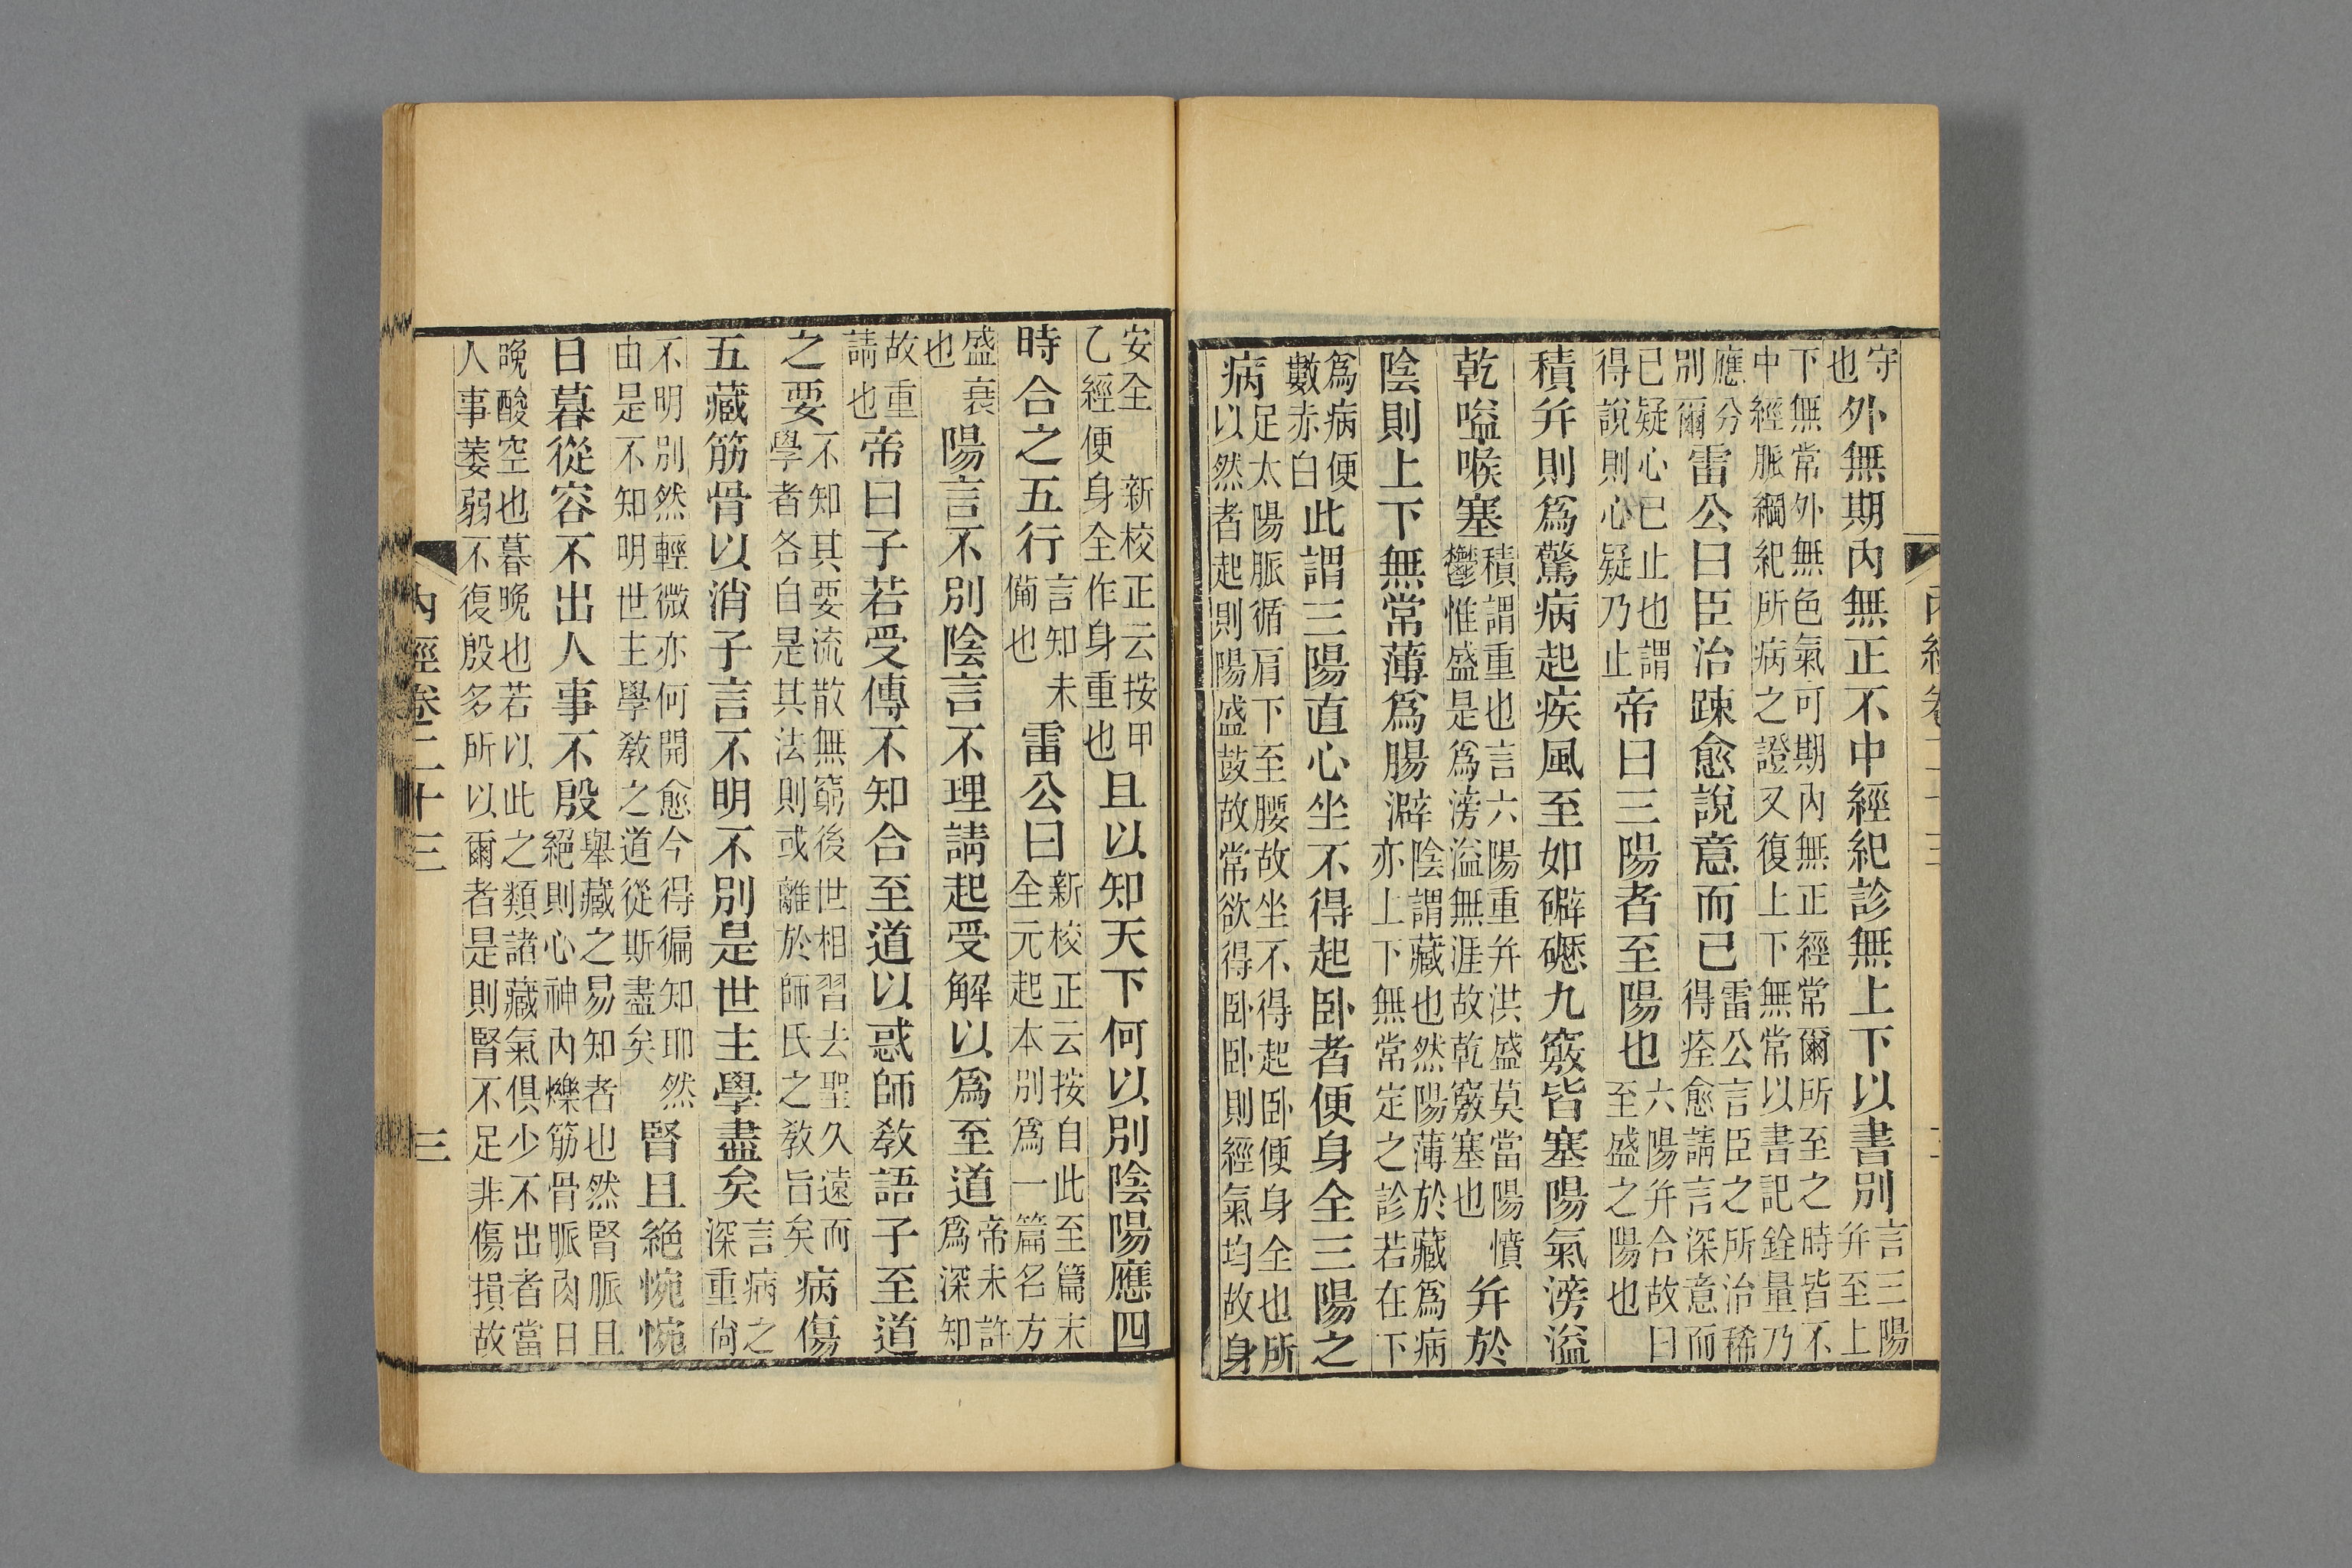 守
也
外無期內無正不中經紀診無上下以書別
言三陽
幷至上
下無常外無色氣可期內無正經常爾所至之時皆不
中經脈綱紀所病之證又復上下無常以書記銓量乃
應分
別爾
雷公曰臣治踈愈說意而已
雷公言臣之所治稀
得痊愈請言深意而
已疑心已止也謂
得說則心疑乃止
帝曰三陽者至陽也
六陽幷合故曰
至盛之陽也
積幷則爲驚病起疾風至如礔礰九竅皆塞陽氣滂溢
乾嗌喉塞
積謂重也言六陽重幷洪盛莫當陽憤
鬱惟盛是爲滂溢無涯故乾竅塞也
幷於
陰則上下無常薄爲腸澼
陰謂藏也然陽薄於藏爲病
亦上下無常定之診若在下
爲病便
數赤白
此謂三陽直心坐不得起臥者便身全三陽之
病
足太陽脈循肩下至腰故坐不得起臥便身全也所
以然者起則陽盛鼓故常欲得臥臥則經氣均故身
安全　新校正云按甲
乙經便身全作身重也
且以知天下何以別陰陽應四
時合之五行
言知未
備也
雷公曰
新校正云按自此至篇末
全元起本別爲一篇名方
盛衰
也
陽言不別陰言不理請起受解以爲至道
帝未許
爲深知
故重
請也
帝曰子若受傳不知合至道以惑師教語子至道
之要
不知其要流散無窮後世相習去聖久遠而
學者各自是其法則或離於師氏之教旨矣
病傷
五藏筋骨以消子言不明不別是世主學盡矣
言病之
深重尙
不明別然輕微亦何開愈今得徧知耶然
由是不知明世主學教之道從斯盡矣
腎且絕惋惋
日暮從容不出人事不殷
舉藏之易知者也然腎脈且
絕則心神內爍筋骨脈肉日
晚酸空也暮晚也若以此之類諸藏氣俱少不出者當
人事萎弱不復殷多所以爾者是則腎不足非傷損故
內經卷二十三
三